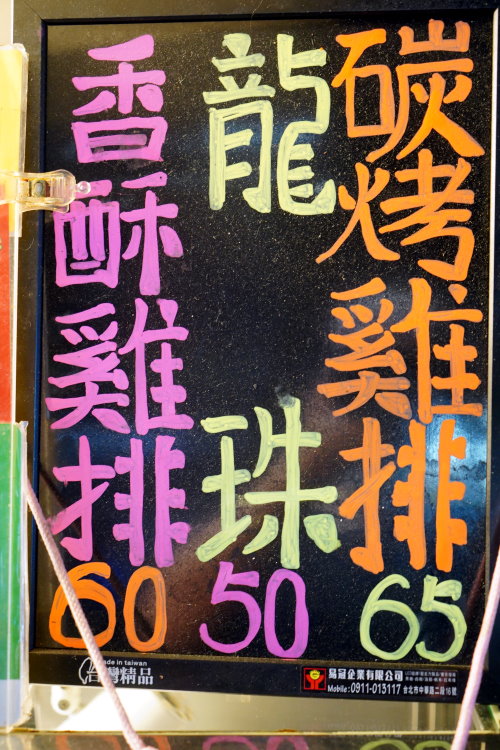 碳烤雞排
65
龍珠
50
香酥雞排
60
made in taiwan
台灣精品
易冠企業有限公司
Mobile:0911-013117 台北市中華路二段16號